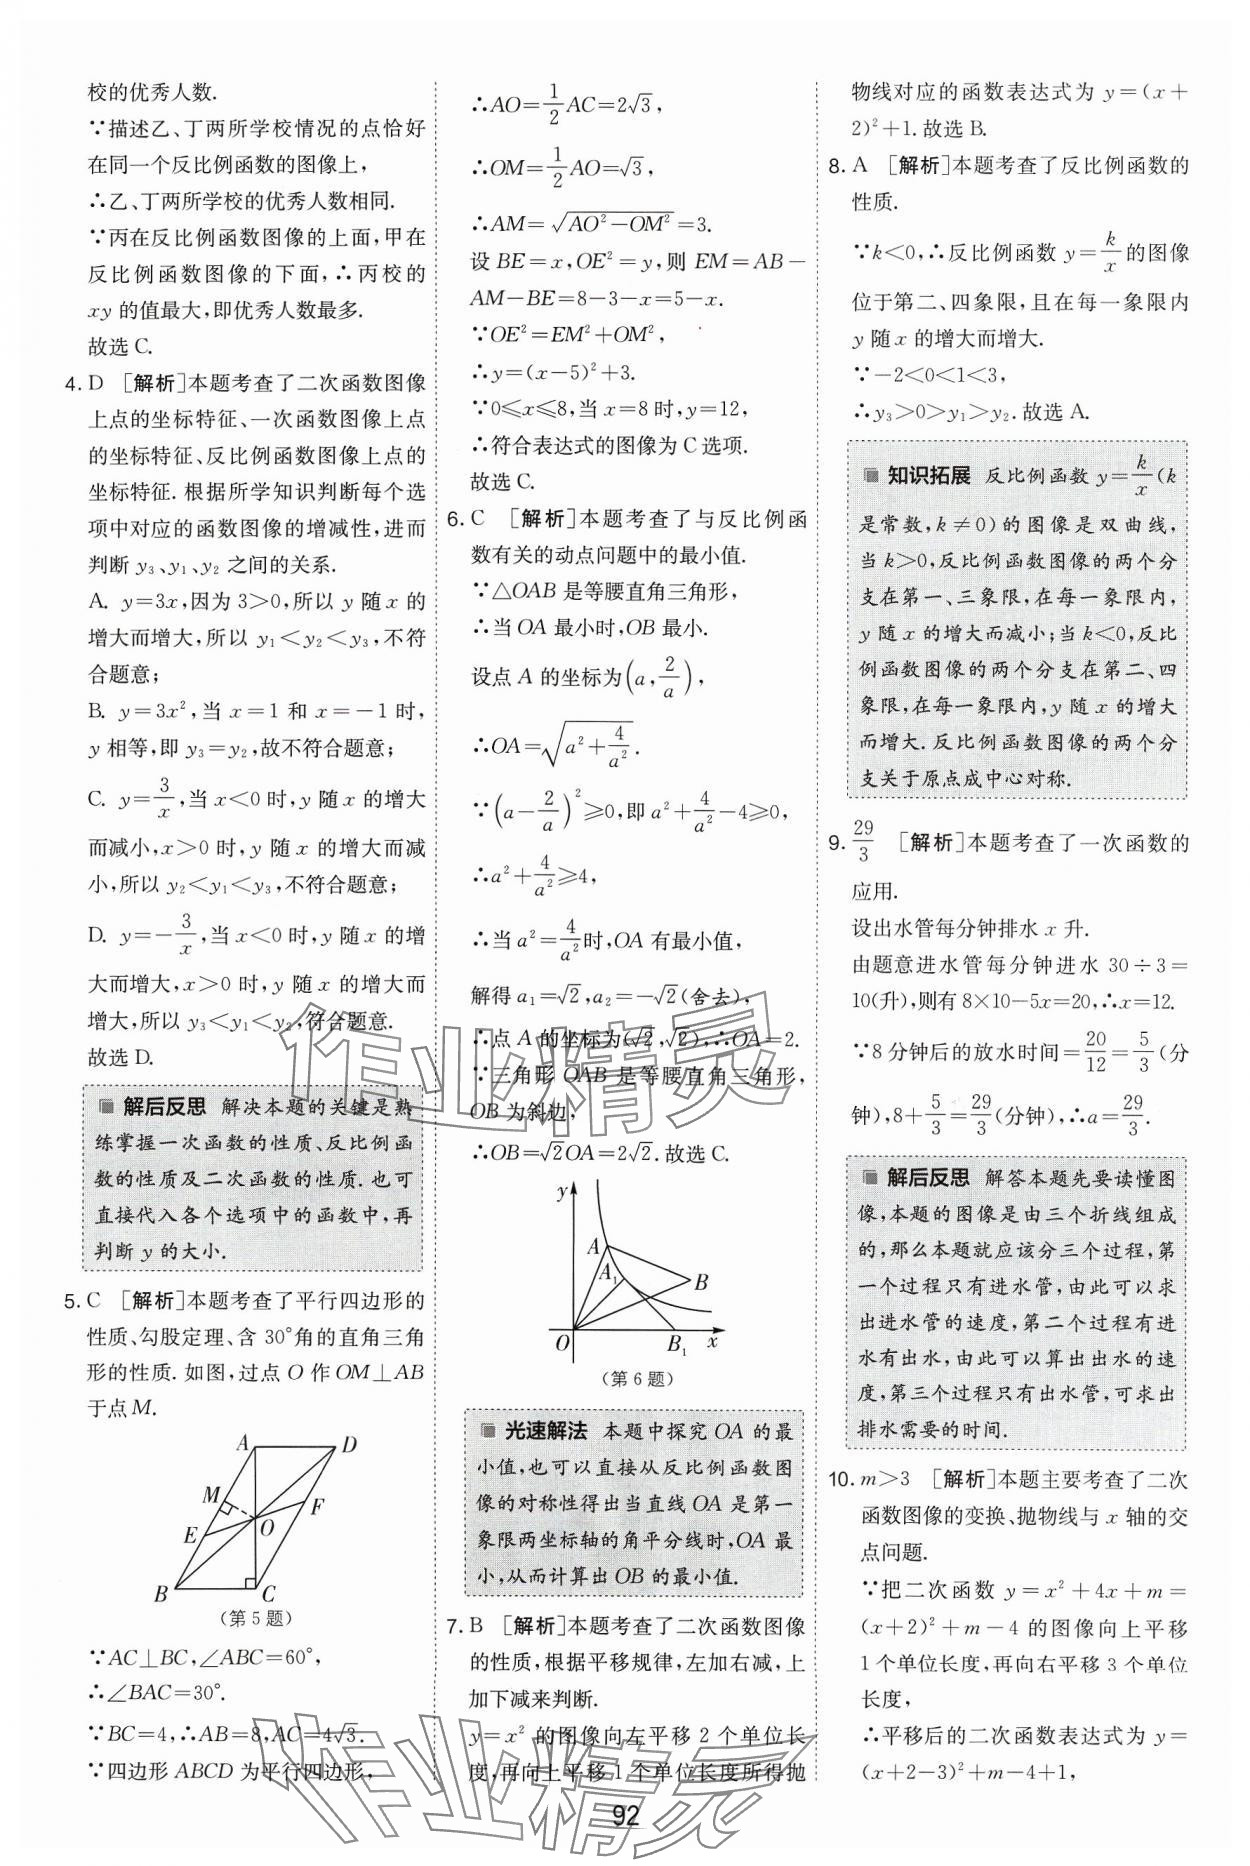 校的优秀人数.
∵描述乙、丁两所学校情况的点恰好
在同一个反比例函数的图像上,
∴乙、丁两所学校的优秀人数相同.
∵丙在反比例函数图像的上面,甲在
反比例函数图像的下面,∴丙校的
xy 的值最大,即优秀人数最多.
故选 C.
4. D [解析]本题考查了二次函数图像
上点的坐标特征、一次函数图像上点
的坐标特征、反比例函数图像上点的
坐标特征.根据所学知识判断每个选
项中对应的函数图像的增减性,进而
判断 y₃、y₁、y₂ 之间的关系.
A. y=3x,因为 3>0,所以 y 随 x 的
增大而增大,所以 y₁<y₂<y₃,不符
合题意;
B. y=3x²,当 x=1 和 x=-1 时,
y 相等,即 y₃=y₂,故不符合题意;
C. y=3/x,当 x<0 时,y 随 x 的增大
而减小,x>0 时,y 随 x 的增大而减
小,所以 y₂<y₁<y₃,不符合题意;
D. y=-3/x,当 x<0 时,y 随 x 的增
大而增大,x>0 时,y 随 x 的增大而
增大,所以 y₃<y₁<y₂,符合题意.
故选 D.
解后反思 解决本题的关键是熟
练掌握一次函数的性质、反比例函
数的性质及二次函数的性质.也可
直接代入各个选项中的函数中,再
判断 y 的大小.
5. C [解析]本题考查了平行四边形的
性质、勾股定理、含 30°角的直角三角
形的性质.如图,过点 O 作 OM⊥AB
于点 M.
A D
M F
E O
B C
(第 5 题)
∵AC⊥BC,∠ABC=60°,
∴∠BAC=30°.
∵BC=4,∴AB=8,AC=4√3.
∵四边形 ABCD 为平行四边形,
∴AO=1/2AC=2√3,
∴OM=1/2AO=√3,
∴AM=√(AO²-OM²)=3.
设 BE=x,OE²=y,则 EM=AB-
AM-BE=8-3-x=5-x.
∵OE²=EM²+OM²,
∴y=(x-5)²+3.
∵0≤x≤8,当 x=8 时,y=12,
∴符合表达式的图像为 C 选项.
故选 C.
6. C [解析]本题考查了与反比例函
数有关的动点问题中的最小值.
∵△OAB 是等腰直角三角形,
∴当 OA 最小时,OB 最小.
设点 A 的坐标为(a,2/a),
∴OA=√(a²+4/a²).
∵(a-2/a)²≥0,即 a²+4/a²-4≥0,
∴a²+4/a²≥4,
∴当 a²=4/a²时,OA 有最小值,
解得 a₁=√2,a₂=-√2(舍去),
∴点 A 的坐标为(√2,√2),∴OA=2.
∵三角形 OAB 是等腰直角三角形,
OB 为斜边,
∴OB=√2OA=2√2.故选 C.
y
A
A₁
B
O B₁ x
(第 6 题)
光速解法 本题中探究 OA 的最
小值,也可以直接从反比例函数图
像的对称性得出当直线 OA 是第一
象限两坐标轴的角平分线时,OA 最
小,从而计算出 OB 的最小值.
7. B [解析]本题考查了二次函数图像
的性质,根据平移规律,左加右减,上
加下减来判断.
y=x² 的图像向左平移 2 个单位长
度,再向上平移 1 个单位长度所得抛
物线对应的函数表达式为 y=(x+
2)²+1.故选 B.
8. A [解析]本题考查了反比例函数的
性质.
∵k<0,∴反比例函数 y=k/x 的图像
位于第二、四象限,且在每一象限内
y 随 x 的增大而增大.
∵-2<0<1<3,
∴y₃>0>y₁>y₂.故选 A.
知识拓展 反比例函数 y=k/x(k
是常数,k≠0)的图像是双曲线,
当 k>0,反比例函数图像的两个分
支在第一、三象限,在每一象限内,
y 随 x 的增大而减小;当 k<0,反比
例函数图像的两个分支在第二、四
象限,在每一象限内,y 随 x 的增大
而增大.反比例函数图像的两个分
支关于原点成中心对称.
9. 29/3 [解析]本题考查了一次函数的
应用.
设出水管每分钟排水 x 升.
由题意进水管每分钟进水 30÷3=
10(升),则有 8×10-5x=20,∴x=12.
∵8 分钟后的放水时间=20/12=5/3(分
钟),8+5/3=29/3(分钟),∴a=29/3.
解后反思 解答本题先要读懂图
像,本题的图像是由三个折线组成
的,那么本题就应该分三个过程,第
一个过程只有进水管,由此可以求
出进水管的速度,第二个过程有进
水有出水,由此可以算出出水的速
度,第三个过程只有出水管,可求出
排水需要的时间.
10. m>3 [解析]本题主要考查了二次
函数图像的变换、抛物线与 x 轴的交
点问题.
∵把二次函数 y=x²+4x+m=
(x+2)²+m-4 的图像向上平移
1 个单位长度,再向右平移 3 个单位
长度,
∴平移后的二次函数表达式为 y=
(x+2-3)²+m-4+1,
92
作业精灵
作业精灵